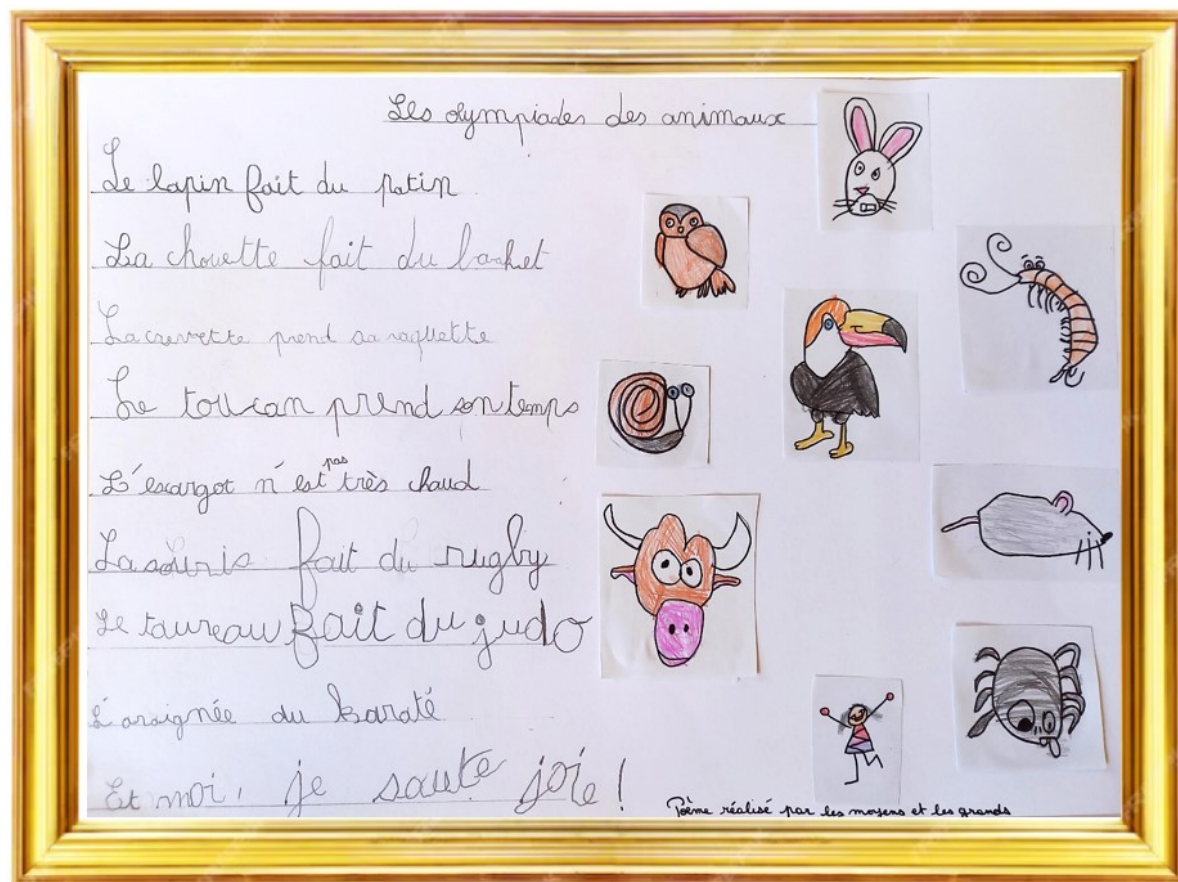 Les olympiades des animaux
Le lapin fait du patin
La chouette fait du basket
La crevette prend sa raquette
Le toucan prend son temps
L'escargot n'est pas très chaud
La souris fait du rugby
Le taureau fait du judo
L'araignée du karaté
Et moi, je saute joie !
Poème réalisé par les moyens et les grands